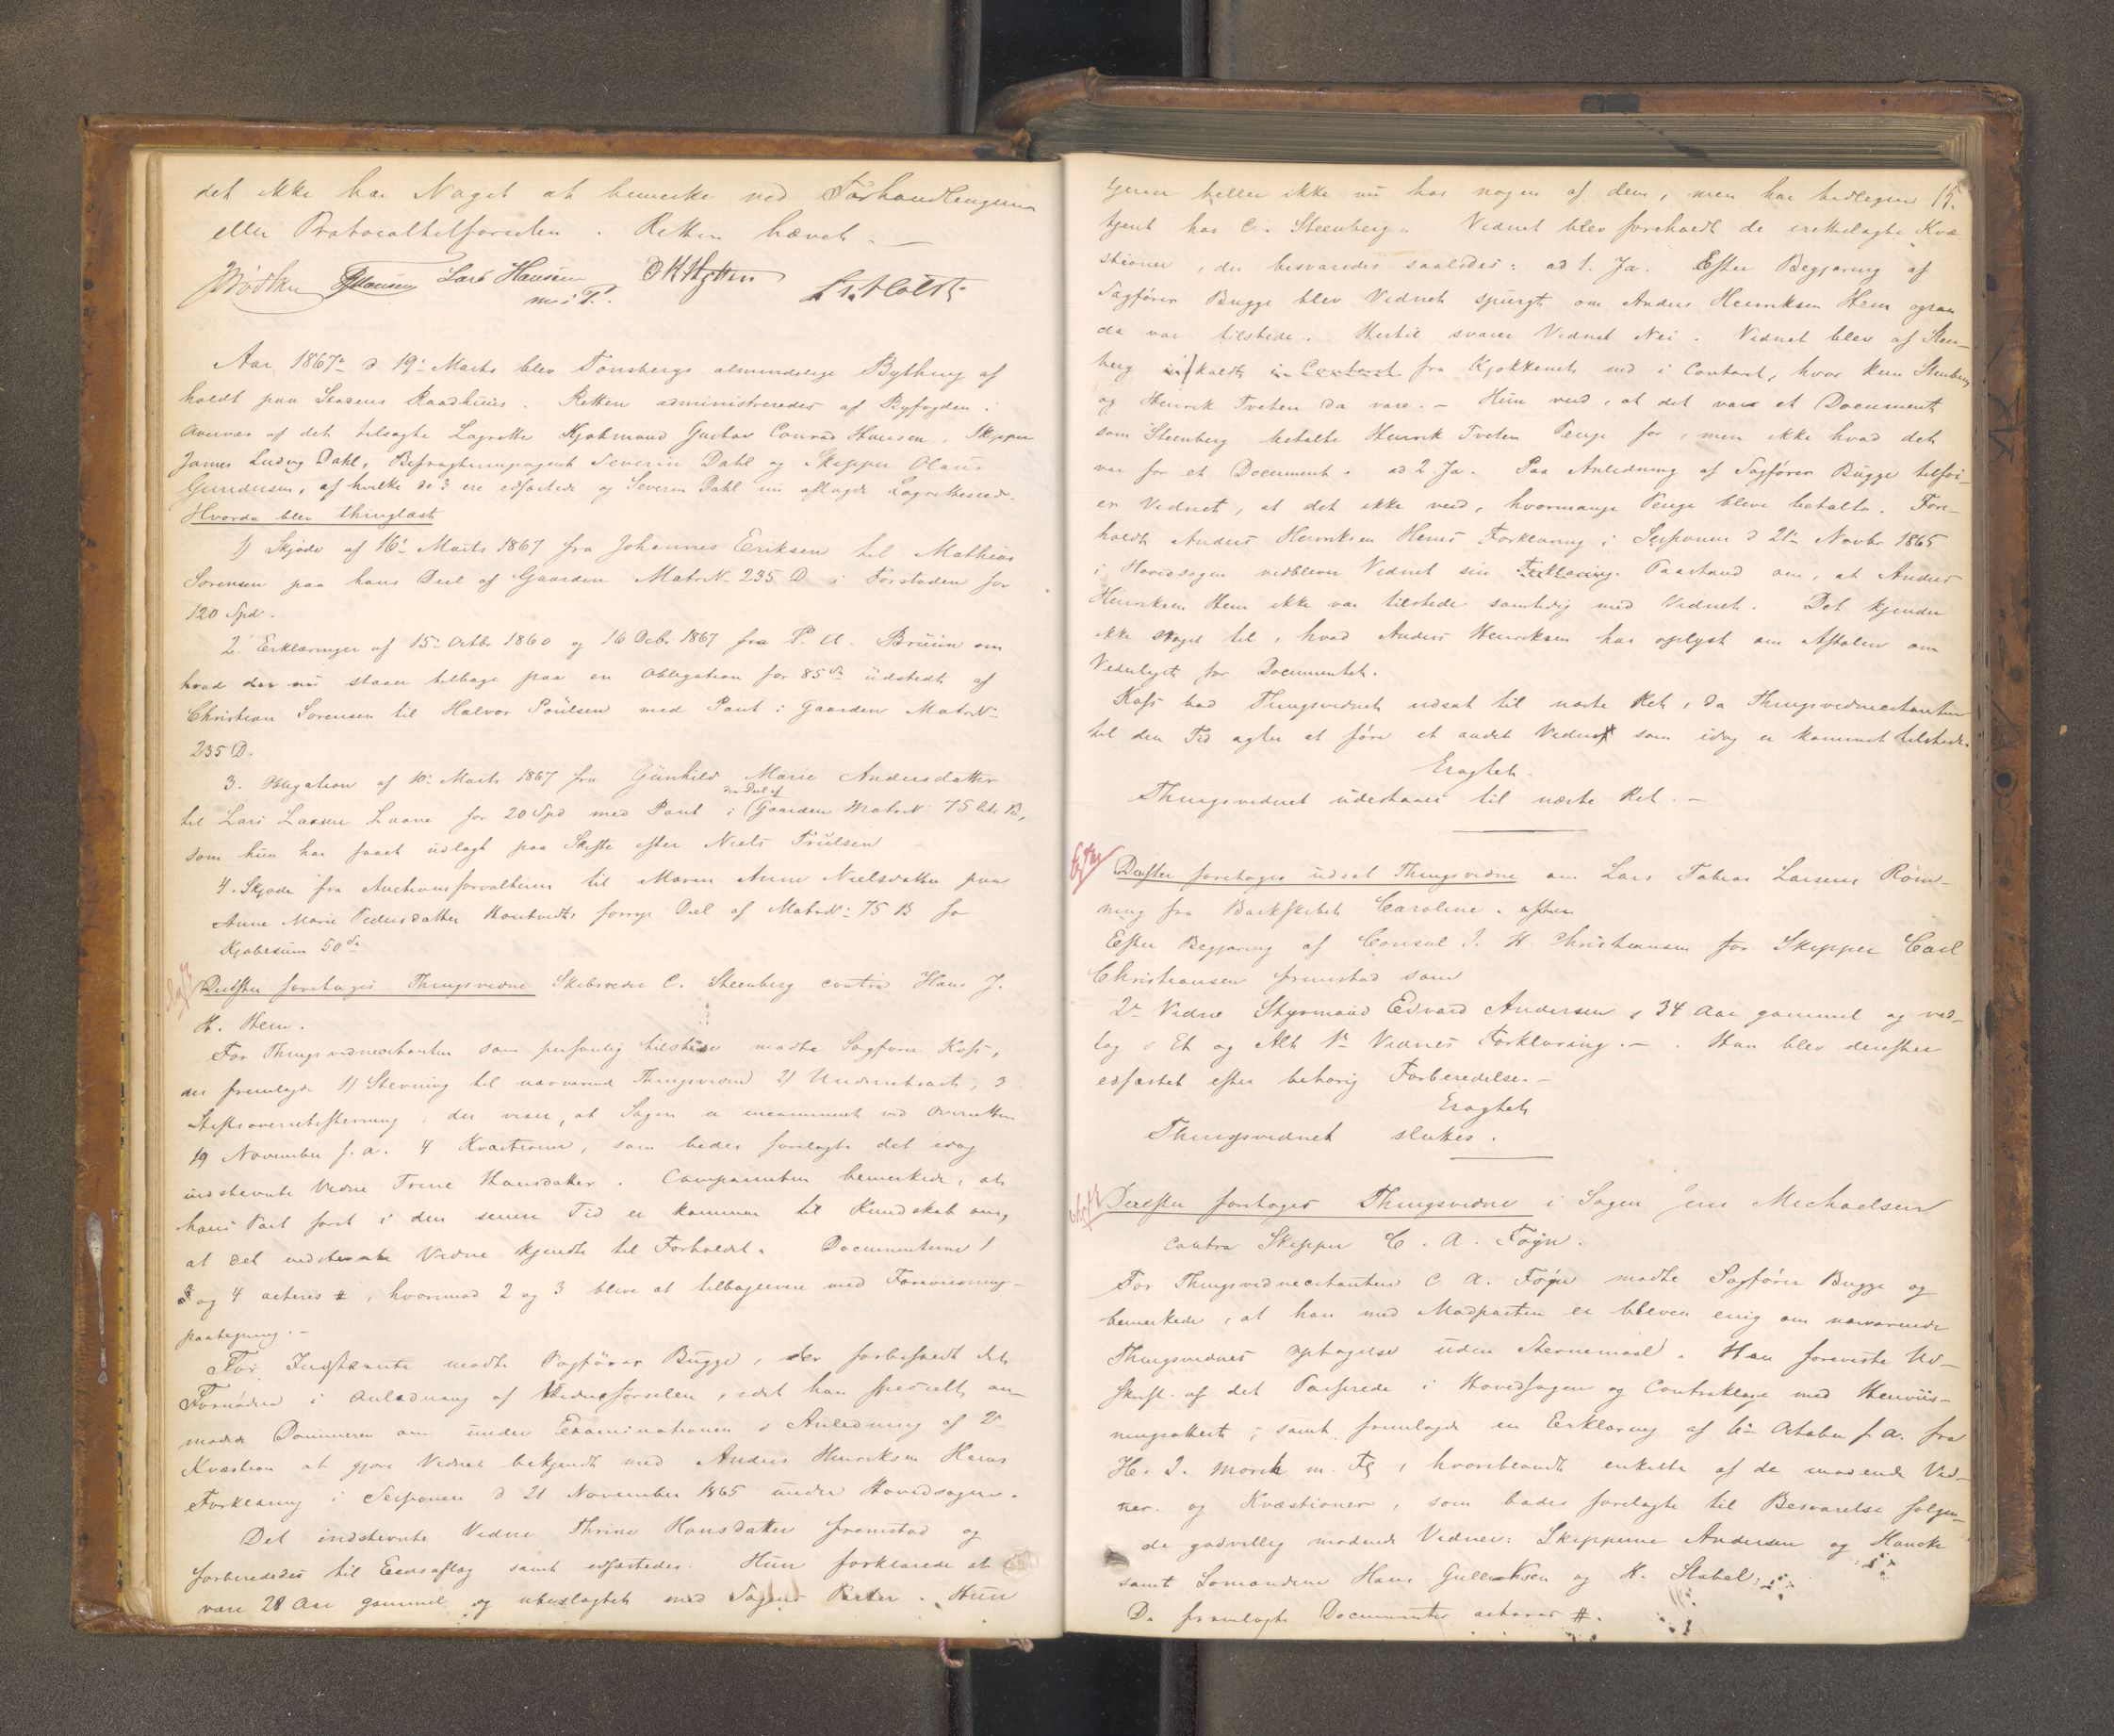 det ikke har Noget at bemærke ved Forhandlingerne
eller Protocoltilførselen. Retten hævet. —
Bødtker Hansen Lars Hansen OKHytten Fr. Holst.
m. i P.
Aar 1867 d 19 Marts blev Tønsbergs almindelige Bything af
holdt paa Stadens Raadhuus. Retten administreredes af Byfogden i
Overvær af det tilsagte Lagrette Kjøbmand Gustav Conrad Hansen, Skipper
James Ludvig Dahl, Befragtningsagent Severin Dahl og Skipper Olaus
Gundersen, af hvilke de 3 ere edfæstede og Severin Dahl nu aflagde Lagretteseed.
Hvorda blev thinglæst
1) Skjøde af 16 Marts 1867 fra Johannes Eriksen til Mathias
Sørensen paa hans Deel af Gaarden MatrN. 235 D i Forstaden for
120 Spd.
2. Erklæringer af 15 Octbr 1860 og 16 Decbr 1867 fra P. A. Bruun om
hvad der nu staaer tilbage paa en Obligation for 85 Sp udstedt af
Christian Sørensen til Halvor Poulsen med Pant i Gaarden MatrN
235 D.
3. Obligation af 10 Marts 1867 fra Gunhild Marie Andersdatter
den Deel af
til Lars Larsen Laane for 20 Spd med Pant i (Gaarden MatrN 75 litr B,
som hun har faaet udlagt paa Skifte efter Niels Trulsen
4. Skjøde fra Auctionsforvalteren til Maren Anne Nielsdatter paa
Anne Marie Pedersdatter forrige Deel af MatrN: 75 B for
Kjøbesum 50 Sp
Derefter foretages Thingsvidne Skibsreder C. Steenberg contra Hans J.
H. Hem.
For Thingsvidnecitanten som personlig tilstede mødte Sagfører Koss,
der fremlagde 1) Stevning til nærværende Thingsvidne 2) Underretsacts, 3
Stiftsoverretsstevning, der viser, at Sagen er incamineret ved Overretten
19 November f. A. 4 Kvæstioner, som bedes forelagte det idag
indstevnte Vidne Trine Hansdatter. Comparenten bemærkede, at
hans Part først i den senere Tid er kommen til Kundskab om,
at det indstevnte Vidne kjendte til Forholdet. Documenterne 1
og 4 acteres #, hvorimod 2 og 3 bleve at tilbagelevere med Foreviisnings-
paategning. —
For Indstevnte mødte Sagfører Bugge, der forbeholdt det
Fornødne i Anledning af Vidneførselen, idet han specielt an-
modede Dommeren om under Examinationen i Anledning af 2
Kvæstion at gjøre Vidnet bekjendt med Anders Henriksen Hems
Forklaring i Sessionen d 21 November 1865 under Hovedsagen.
Det indstevnte Vidne Thrine Hansdatter fremstod og
forberededes til Eedsaflæg samt edfæstedes. Hun forklarede at
være 28 Aar gammel og ubeslægtet med Sagens Parter. Hun
15.
tjener heller ikke nu hos nogen af dem, men har tidligere
tjent hos C. Steenberg. Vidnet blev foreholdt de irettelagte Kvæ
stioner, der besvaredes saaledes: ad 1. Ja. Efter Begjæring af
Sagfører Bugge blev Vidnet spurgt om Anders Henriksen Hem ogsaa
da var tilstede. Hertil svarer Vidnet Nei. Vidnet blev af Steen-
berg kaldt i Contoret fra Kjøkkenet ind i Contoret, hvor kun Steenberg
og Henrik Tveten da vare. — Hun veed, at det var et Document
som Steenberg betalte Henrik Tveten Penge for, men ikke hvad det
var for et Document. ad 2. Ja. Paa Anledning af Sagfører Bugge tilføi-
er Vidnet, at det ikke veed, hvormange Penge bleve betalte. Fore-
holdt Anders Henriksen Hems Forklaring i Sessionen d 21 Novbr 1865
i Hovedsagen vedbliver Vidnet sin Forklaring Paastand om, at Anders
Henriksen Hem ikke var tilstede samtidig med Vidnet. Det kjender
ikke Noget til, hvad Anders Henriksen har oplyst om Aftalen om
Vederlaget for Documentet.
Koss bad Thingsvidnet udsat til næste Ret, da Thingsvidnecitanten
til den Tid agter at føre et andet Vidne som idag er kommet tilstede.
Eragtet.
Thingsvidnet udestaaer til næste Ret. —
Derefter foretages udsat Thingsvidne om Lars Tobias Larsens Røm-
ning fra Barkskibet Caroline.
Efter Begjæring af Consul J. H. Christiansen for Skipper Carl
Christiansen fremstod som
2 Vidne Styrmand Edvard Andersen, 34 Aar gammel og ved-
tog i Et og Alt 1 Vidnes Forklaring. — . Han blev derefter
edfæstet efter behørig Forberedelse. —
Eragtet
Thingsvidnet sluttes.
Derefter foretages Thingsvidne i Sagen Jens Michaelsen
contra Skipper C. A. Føyn.
For Thingsvidnecitanten C. A. Føyn mødte Sagfører Bugge og
bemærkede, at han med Modparten er bleven enig om nærværende
Thingsvidnes Optagelse uden Stevnemaal. Han foreviste Ud-
skrift af det Passerede i Hovedsagen og Contraklage med Henviis-
ningsattest, samt fremlagde en Erklæring af October f. A. fra
H. J. Morch m. Fl, hvoriblandt enkelte af de mødende Vid-
ner. og Kvæstioner, som bades forelagte til Besvarelse følgen-
de godvillig mødende Vidner: Skipperne Andersen og Hancke
samt Sømændene Hans Gulliksen og H. Stabel.
De fremlagte Documenter acteres #.